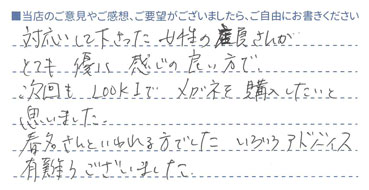 ■当店のご意見やご感想、ご要望がございましたら、ご自由にお書きください
対応して下さった女性の店員さんが
とても優しく感じの良い方で、
次回もLOOKIでメガネを購入したいと
思いました。
春名さんといわれる方でした いろいろアドバイス
有難うございました